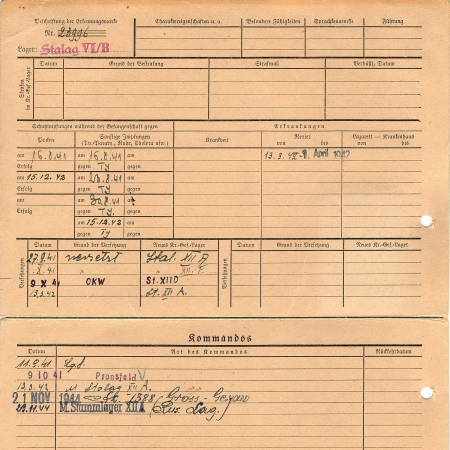 Beschriftung der Erkennungsmarke
Nr. 22996
Charaktereigenschaften u. a.
Besondere Fähigkeiten
Sprachkenntnisse
Führung
Lager: Stalag VI/B
Strafen im Kr.-Gef.-Lager
Datum
Grund der Bestrafung
Strafmaß
Verbüßt, Datum
Schutzimpfungen während der Gefangenschaft gegen
Erkrankungen
Pocken
Sonstige Impfungen
(Ty.-Paraty., Ruhr, Cholera usw.)
Krankheit
Revier
von bis
Lazarett — Krankenhaus
von bis
am 16.8.41
am 16.8.41
am
13.3.42 - 8. April 1942
Erfolg
gegen Ty
gegen
am 15.12.42
am 23.8.41
am
Erfolg
gegen Ty
gegen
am
am 30.8.41
Erfolg
gegen Ty.
gegen
am 15.12.42
am
gegen Ty
gegen
Versetzungen
Datum
Grund der Versetzung
Neues Kr.-Gef.-Lager
Versetzungen
Datum
Grund der Versetzung
Neues Kr.-Gef.-Lager
27.9.41 versetzt Stal. XII A
.X.41 " XII. F.
9 X 41 OKW St. XII D
13.3.42 St. XII A.
Kommandos
Datum
Art des Kommandos
Rückkehrdatum
11.9.41 Lgd.
9 10 41 Pronsfeld V
13.3.42 M Stalag XII A.
21 NOV 1944 1388 Gross-Gerau
29.11.44 M. Stammlager XII A